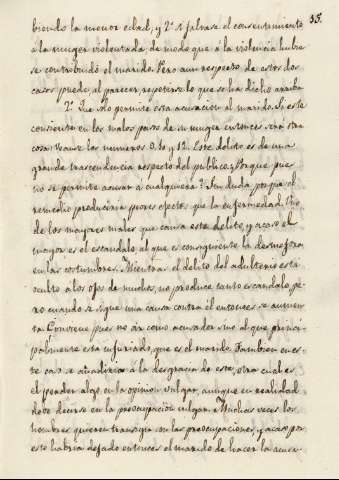 35.
biendo la menor edad; y 2º si faltase el consentimiento
á la muger violentada, de modo que á la violencia hubie
se contribuido el marido. Pero aun respecto de estos dos
casos puede al parecer repetirse lo que se ha dicho arriba
2º. Que solo permite esta acusacion al marido. Si este
consiente en los malos pasos de su muger entonces otra
cosa. Veanse los numeros 9. 10 y 12. Este delito es de una
grande trascendencia respecto del publico. ¿Porque pues
no se permite acusar a cualquiera? Sin duda porque el
remedio produciria peores efectos que la enfermedad. Uno
de los mayores males que causa este delito, y acaso el
mayor es el escandalo, al que es consiguiente la
en las costumbres. Mientras el delito del adulterio está
oculto a los ojos de muchos, no produce tanto escandalo, pe
ro cuando se sigue una causa contra él entonces se aumen
ta. Conviene pues no oir como acusador sino al que princi
palmente esta injuriado, que es el marido. Tambien en es
te caso se añadiria á la desgracia de este, otra cual es
el perder algo en la opinion vulgar, aunque en realidad
debe decirse en la preocupacion vulgar. Muchas veces los
hombres quieren transigir con las preocupaciones, y acaso por
esto habria dejado entonces el marido de hacer la acusa